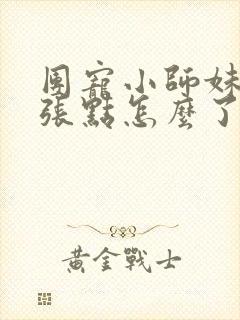 團寵小師妹
張點怎麼了
黃金戰士